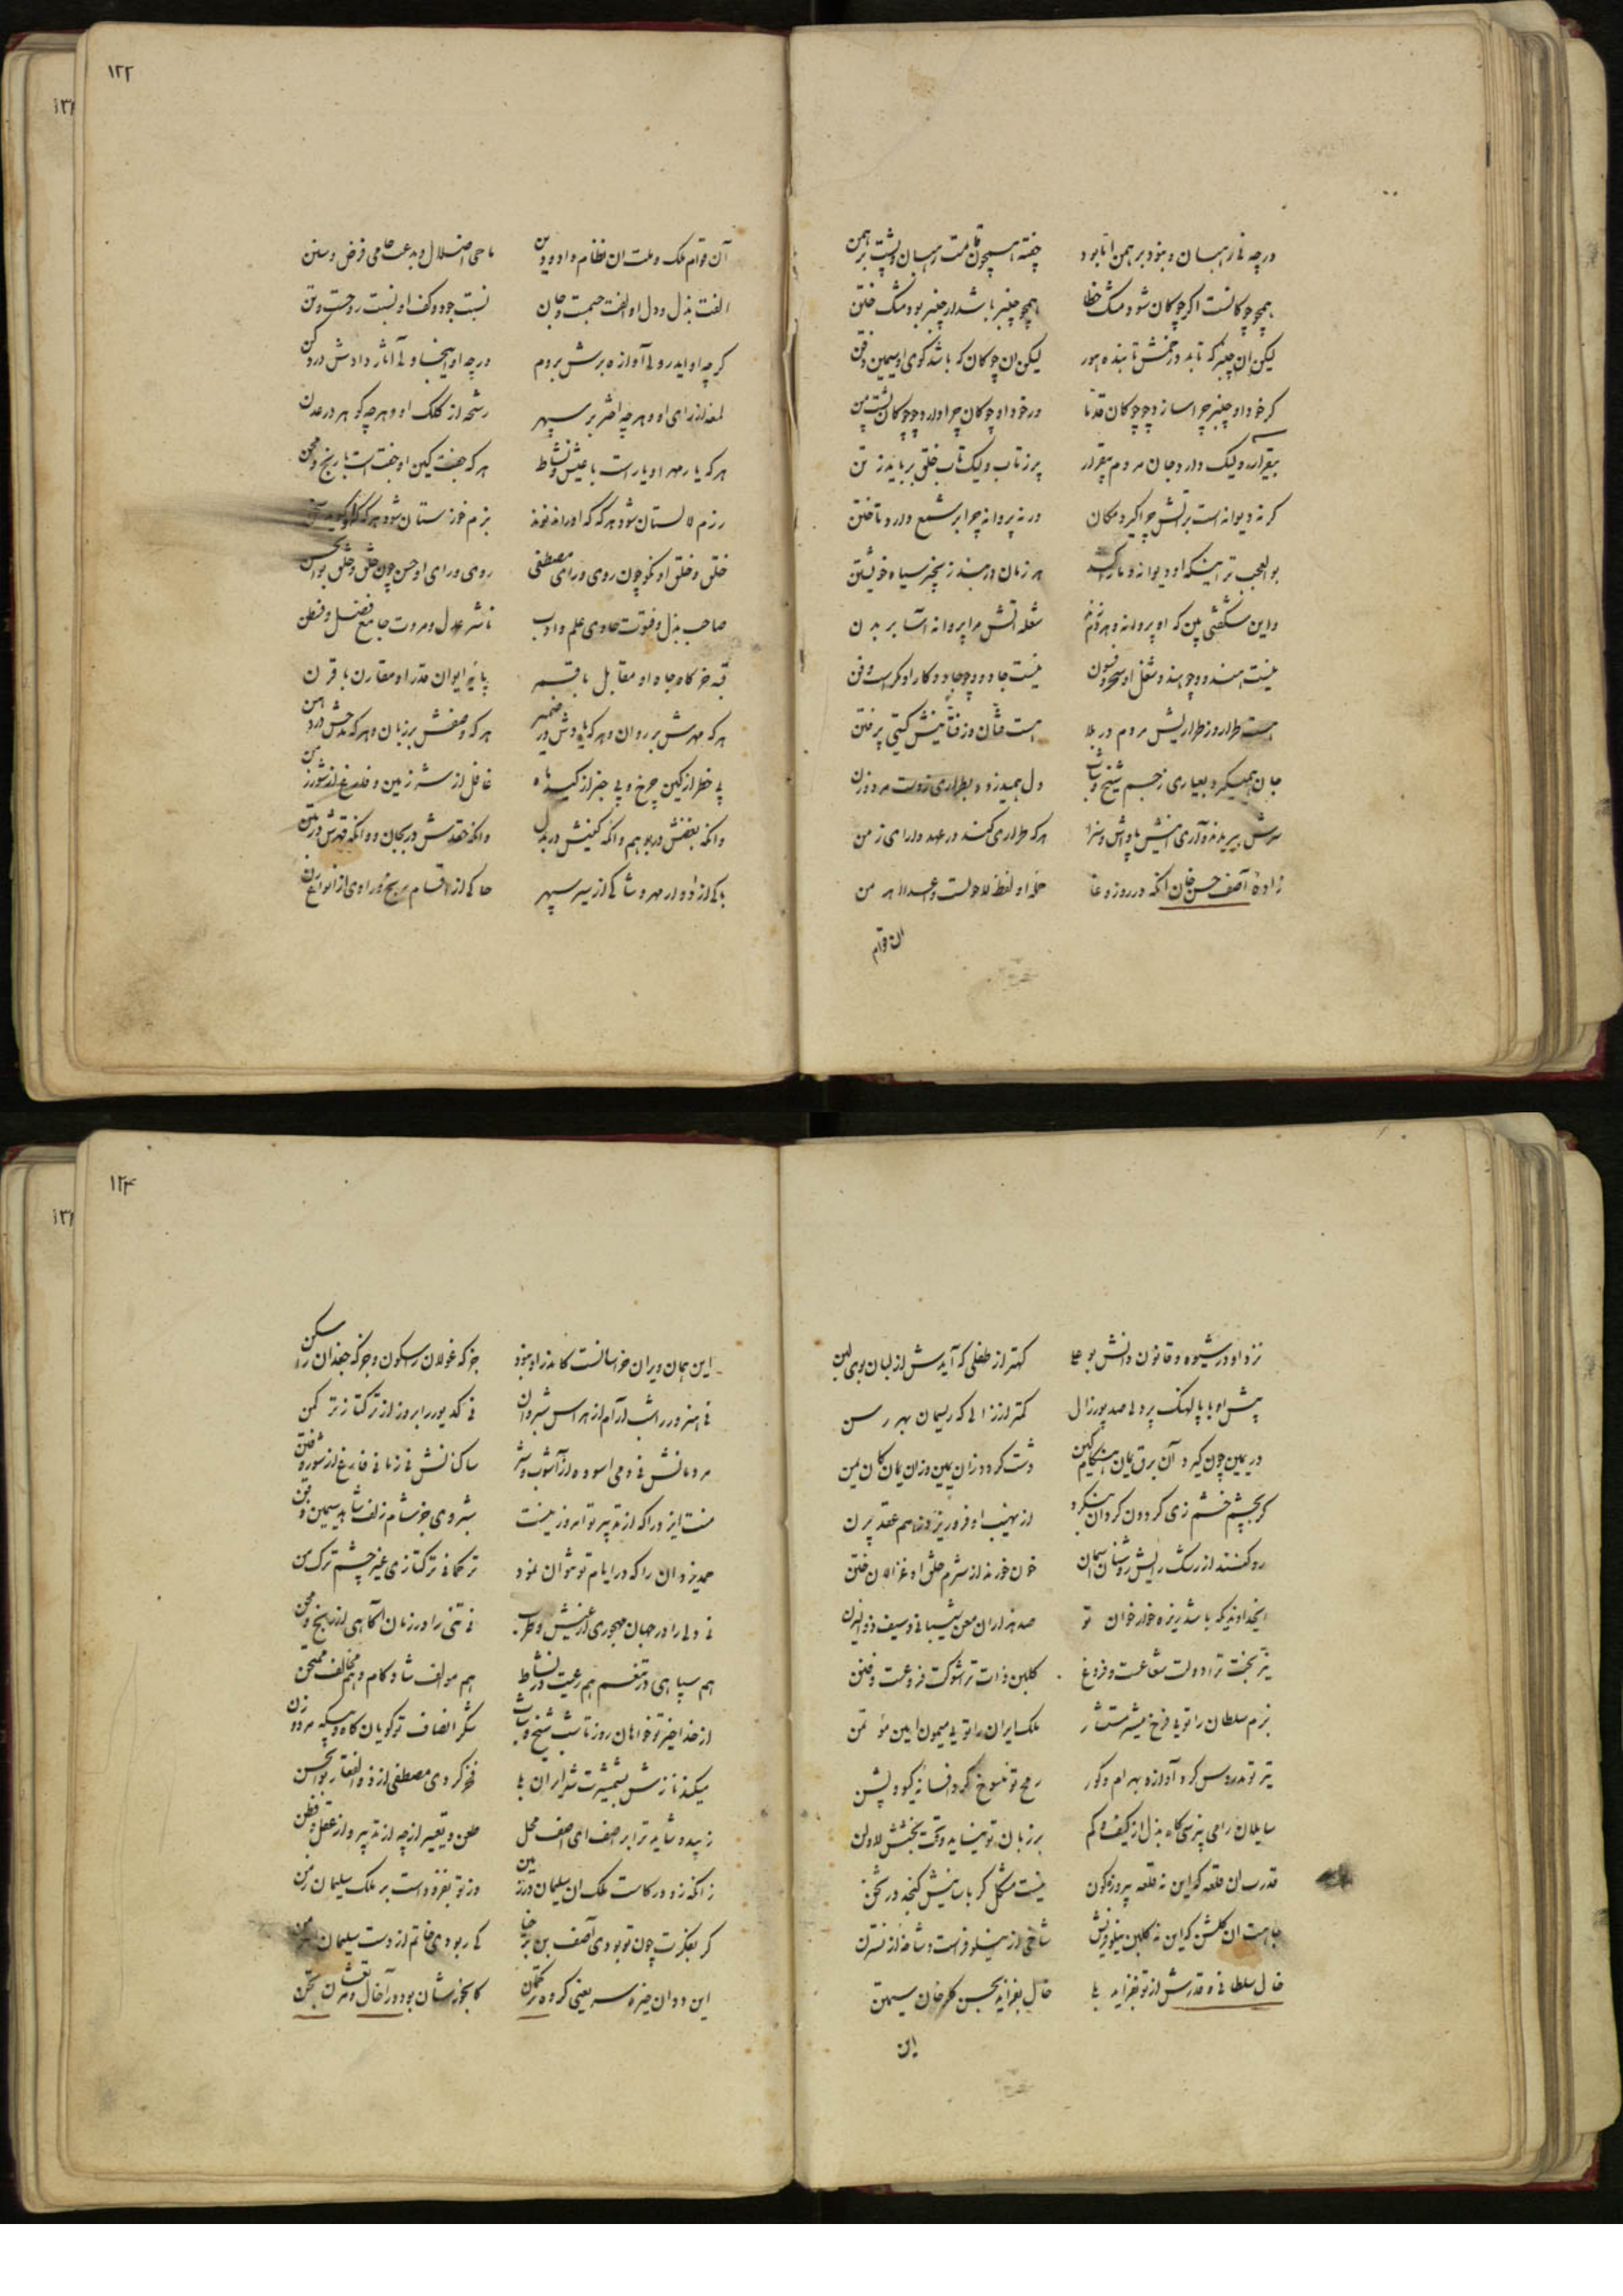 ۱۲۲
درچه نی رهبان و بنود برهمن اتا بود چفته همچون قامت رهبان و پشت برهمن
همچو چوکانست اگر چوکان شود مشک خطا همچو چنبر باشد ار چنبر بود مشک ختن
لیکن ان چنبر که تابد درخمش تابنده هور لیکن ان چوکان که باشد کوی او سیمین ذقن
کر خود او چنبر چرا سازد چو چوکان قد ما ور خود او چوکان چرا دارد چو چوکان پشت من
بیقرار و لیک دارد جان مردم بیقرار پر ز تاب و لیک تاب خلق برباید ز تن
کر نه دیوانه است بر آتش چرا کیرد مکان ور نه پروانه چرا بر شمع دارد تاختن
بوالعجب تر اینکه او دیوانه و مارا کشد هر زمان در بند زنجیر سیاه خویشتن
واین شکفتی بین که او پروانه و هردم زند شعله آتش مرا پروانه آسا بر بدن
نیست هندو و چو هندو شغل او سحر و فسون نیست جادو و چو جادو کار او مکر است و فن
هست طرار و ز طراریش مردم در بلا هست فتان و ز فتانیش کیتی پر فتن
جان همیکیرد بعیاری ز جسم شیخ و شاب دل همیدزدد بطراری ز دست مرد و زن
هرکه طراری کند در عهد دارای زمن
زادهٔ آصف حسن خان آنکه در روز وغا
الن قوام
آن قوام ملک و ملت ان نظام داد و دین ماحی اضلال و بدعت حامی فرض و سنن
الفت بذل و دل او الفت جسمت و جان نسبت جود و کف او نسبت روحست و تن
کرچه او ایدر ولی آوازه برش بروم ورچه او اینجا ولی آثار دادش در دکن
لمعه از رای او و هرچه اختر بر سپهر رشحه از کلک او و هرچه کوهر در عدن
هرکه یار مهر او یار است با عیش و نشاط هرکه جفت کین او جفت است با رنج و محن
رزم لالستان شود هرکه که او راند
خلق و خلق او نکو چون روی و رای مصطفی روی و رای او حسن چون خلق و خلق بوالحسن
صاحب بذل و فتوت حاوی علم و ادب ناشر عدل و مروت جامع فضل و فطن
قبه خرکاه جاه او مقابل با قمر پایه ایوان قدر او مقارن با قرن
هرکه مهرش بر روان و هرکه یادش در ضمیر هرکه وصفش بر زبان و هرکه مدحش در دهن
بی خطر از کین چرخ و بی خبر از کید ماه غافل از شر زمین و فارغ از شور زمن
وانکه بغضش در و هم وانکه کینش در بدل وانکه حقدش در بجان و وانکه قهرش در بتن
باکی از دوار مهر و شاکی از سیر سپهر حاکی از اقسام رنج و راوی از انواع رن
۱۲۴
نزد او در شیوه و قانون دانش بو علی کهتر از طفلی که آیدش از لبان بوی لبن
پیش او با پالهنک پردلی صد پور زال کمتر از زالی که ریسمان بهر رسن
در یمین چون کیرد آن برق یمان هنکام کین
کر بچشم خشم زی کردون کردان بنکرد از نهیب او فرو ریزد ز هم عقد پرن
خون خورند از شرم خلق او غزالان ختن
ایخداوندیکه باشد ریزه خوار خوان تو صد هزاران معن شیبانی و سیف ذو الیزن
نیر بخت ترا دولت شعاعست و فروغ کلبن ذات ترا شوکت فروعست و فنن
بزم سلطان را توئی فرخ مشیر مستشار ملک ایران را توئی میمون امین مؤتمن
تیر تو مدروس کرد آوازه بهرام و کور رمح تو منسوخ کرد افسانه کیو و پشن
سایلان را می نپرسی کاه بذل از کیف و کم بر زبان تو نیاید وقت بخشش لا و لن
قدرت ان قلعه که این نه قلعه پیروزه کون نیست مشکل کر باسانیش کنجد در شحن
جاهت ان کلشن که این نه کلبن نیلوفریش شاخی از نیلوفر است و شاخه از نسترن
خال سلطانی و قدرش از تو بفزاید بلی خال بفزاید بحسن کلرخان سیمتن
این
این همان ویران خراسانست کاندر او نبود جز که غولان را سکون و جز که جغدان را سکن
نی هنرور را شب آرام از هراس شبروان نی کدیور را بروز از ترکتاز ترکمن
مردمانش نی دمی اسوده از آشوب و شر ساکنانش نی زمانی فارغ از شور و فتن
منت ایزد را که از تدبیر تو امروز نیست شبروی جز شام زلف شاهد سیمین ذقن
حمد یزدان را که در ایام تو نتوان نمود ترکمانی ترکتازی غیر چشم ترک من
نی دلی را در جهان مهجوری از عیش و طرب نی تنی را در زمان آکاهی از رنج و محن
هم سپاهی در تنعم هم رعیت در نشاط هم موالف شادکام و هم مخالف ممتحن
از خدا خیر تو خواهان روز تا شب شیخ و شاب شکر انصاف تو کویان کاه و بیکه مرد و زن
میکند نازش بشمشیرت شه ایران بلی فخر کردی مصطفی از ذوالفقار بوالحسن
زیبد و شاید ترا بر آصف ای آصف محل طعن و تعییر از چه از تدبیر و از عقل و فطن
زانکه زو در کاست ملک ان سلیمان در زمین وز تو بفزوده است بر ملک سلیمان زمن
کر بفکرت چون تو بودی آصف بن برخیا کی ربودی خاتم از دست سلیمان اهرمن
این ددان خیره سر یعنی کروه ترکمان